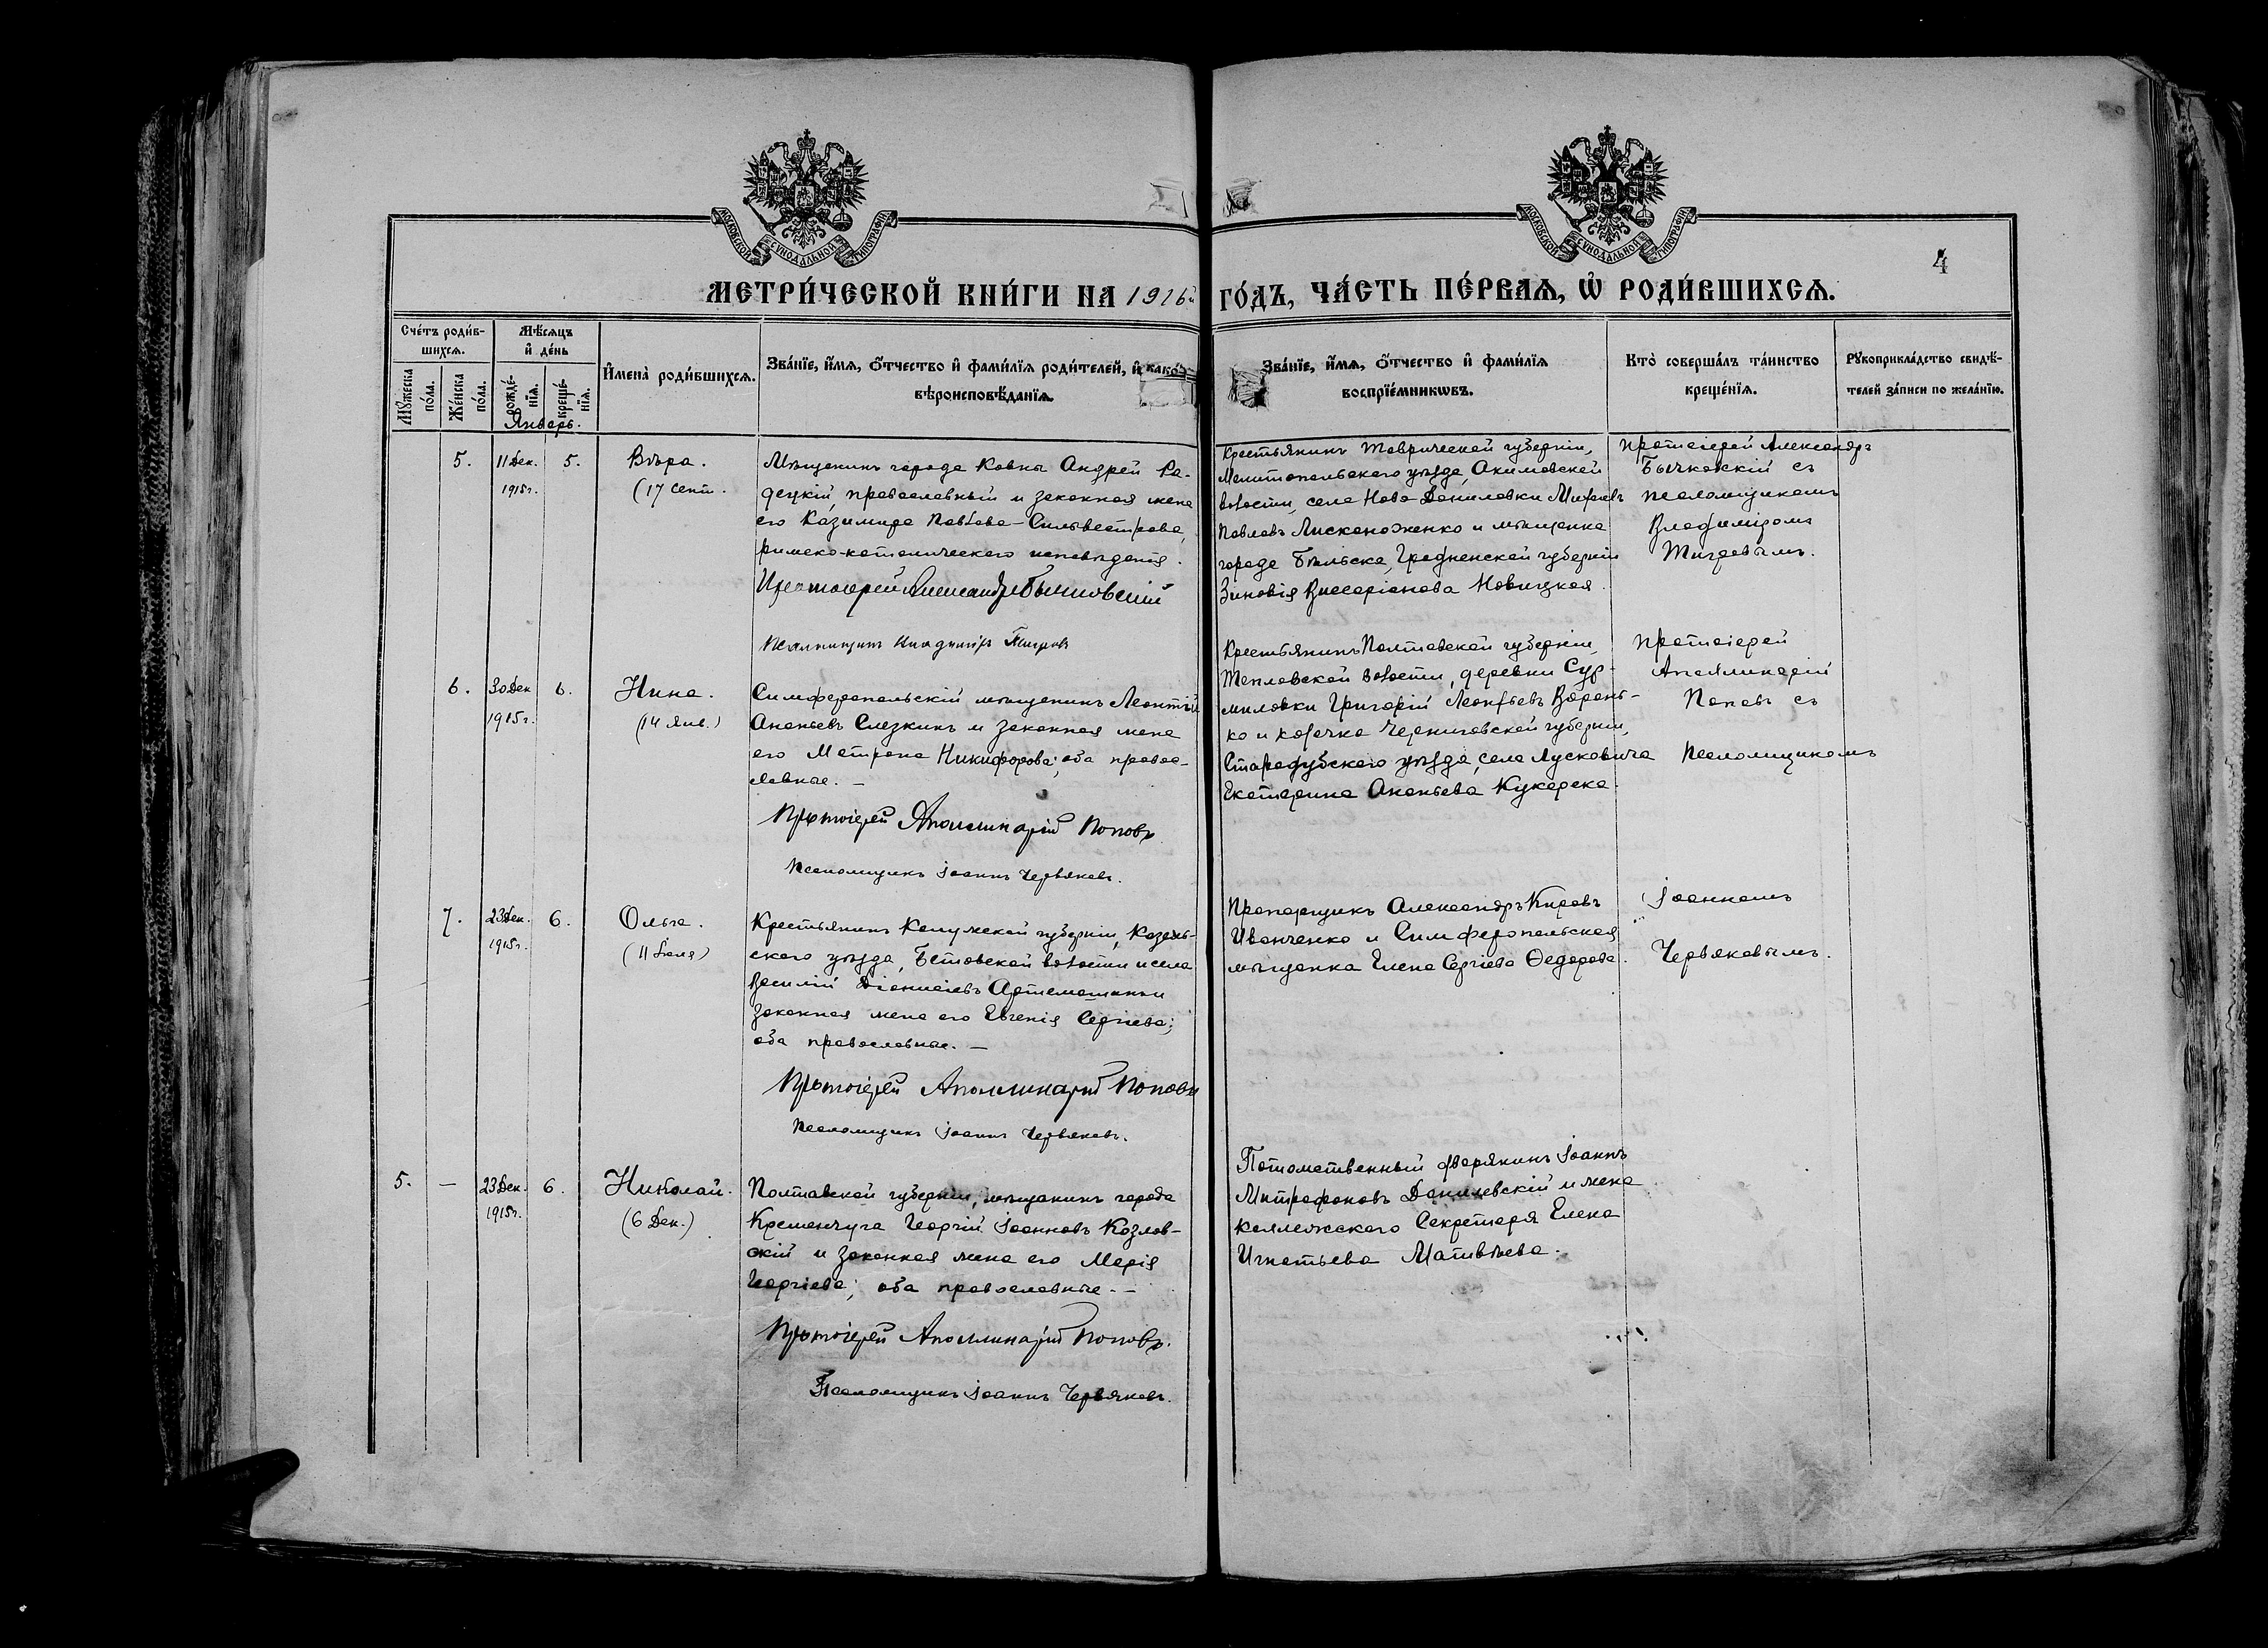 МОСКОВСКОЙ СѴНОДАЛЬНОЙ ТИПОГРАФІИ
МОСКОВСКОЙ СѴНОДАЛЬНОЙ ТИПОГРАФІИ
4
МЕТРИ́ЧЕСКОЙ КНИ́ГИ НА 1916й ГО́ДЪ, ЧА́СТЬ ПЕ́РВАѦ, Ѽ РОДИ́ВШИХСѦ.
Сче́тъ роди́в-
шихсѧ.
Мꙋ́жеска по́ла.
Же́нска по́ла.
Мѣ́сѧцъ и҆ де́нь
рожде́-нїѧ.
креще́-нїѧ.
Январь.
И҆мена̀ роди́вшихсѧ.
Зва́нїе, и҆́мѧ, ѻ҆́тчество и҆ фами́лїѧ роди́телей, и҆ како́гѡ
вѣроисповѣ́данїѧ.
Зва́нїе, и҆́мѧ, ѻ҆́тчество и҆ фами́лїѧ
воспрїе́мникѡвъ.
Кто̀ соверша́лъ та́инство
креще́нїѧ.
Рꙋкоприкла́дство свидѣ́-
телей за́писи по жела́нїю.
5. 11 Дек. 5.
1915г.
Вѣра.
(17 Сент.
Мѣщанинъ города Ковны Андрей Ра-
децкій, православный и законная жена
его Казимира Павлова-Сильвестрова,
римско-католическаго исповѣданія.
Протоіерей Александръ Бычковскій
Псаломщикъ Владиміръ Тигровъ
Крестьянинъ Таврической губерніи,
Мелитопольскаго уѣзда, Акимовской
волости, села Ново-Даниловки
Павловъ Лисконоженко и мѣщанка
города Бѣльска, Гродненской губерніи
Зиновія Виссаріонова Новицкая.
Протоіерей Александръ
Бычковскій съ
псаломщикомъ
Владиміромъ
Тигровымъ.
6. 30 Дек 6.
1915г.
Нина.
(14 Янв.)
Симферопольскій мѣщанинъ Леонтій
Ананьевъ Слезкинъ и законная жена
его Матрона Никифорова; оба правос-
лавные. —
Протоіерей Аполлинарій Поповъ
Псаломщикъ Іоаннъ Червяковъ.
Крестьянинъ Полтавской губерніи,
Тепловской волости, деревни Сур-
миловки Григорій Леонтьевъ Воронь-
ко и козачка Черниговской губерніи,
Стародубскаго уѣзда, села Лусковича
Екатерина Ананьева Кукарека.
Протоіерей
Аполлинарій
Поповъ съ
Псаломщикомъ
7. 23 Дек. 6.
1915г.
Ольга.
(11 Іюля)
Крестьянинъ Калужской губерніи, Козель-
скаго уѣзда, Бетовской волости и села
Василій Діонисіевъ
законная жена его Евгенія Сергіева;
оба православные. —
Протоіерей Аполлинарій Поповъ
Псаломщикъ Іоаннъ Червяковъ.
Прапорщикъ Александръ Кировъ
Иванченко и Симферопольская
мѣщанка Елена Сергіева Ѳедорова.
Іоанномъ
Червяковымъ.
5. — 23 Дек. 6.
1915г.
Николай.
(6 Дек.)
Полтавской губерніи, мѣщанинъ города
Кременчуга Георгій Іоанновъ Козлов-
скій и законная жена его Марія
Георгіева; оба православные. —
Протоіерей Аполлинарій Поповъ.
Псаломщикъ Іоаннъ Червяковъ.
Потомственный дворянинъ Іоаннъ
Митрофановъ Данилевскій и жена
коллежскаго Секретаря Елена
Игнатьева Матвѣева.